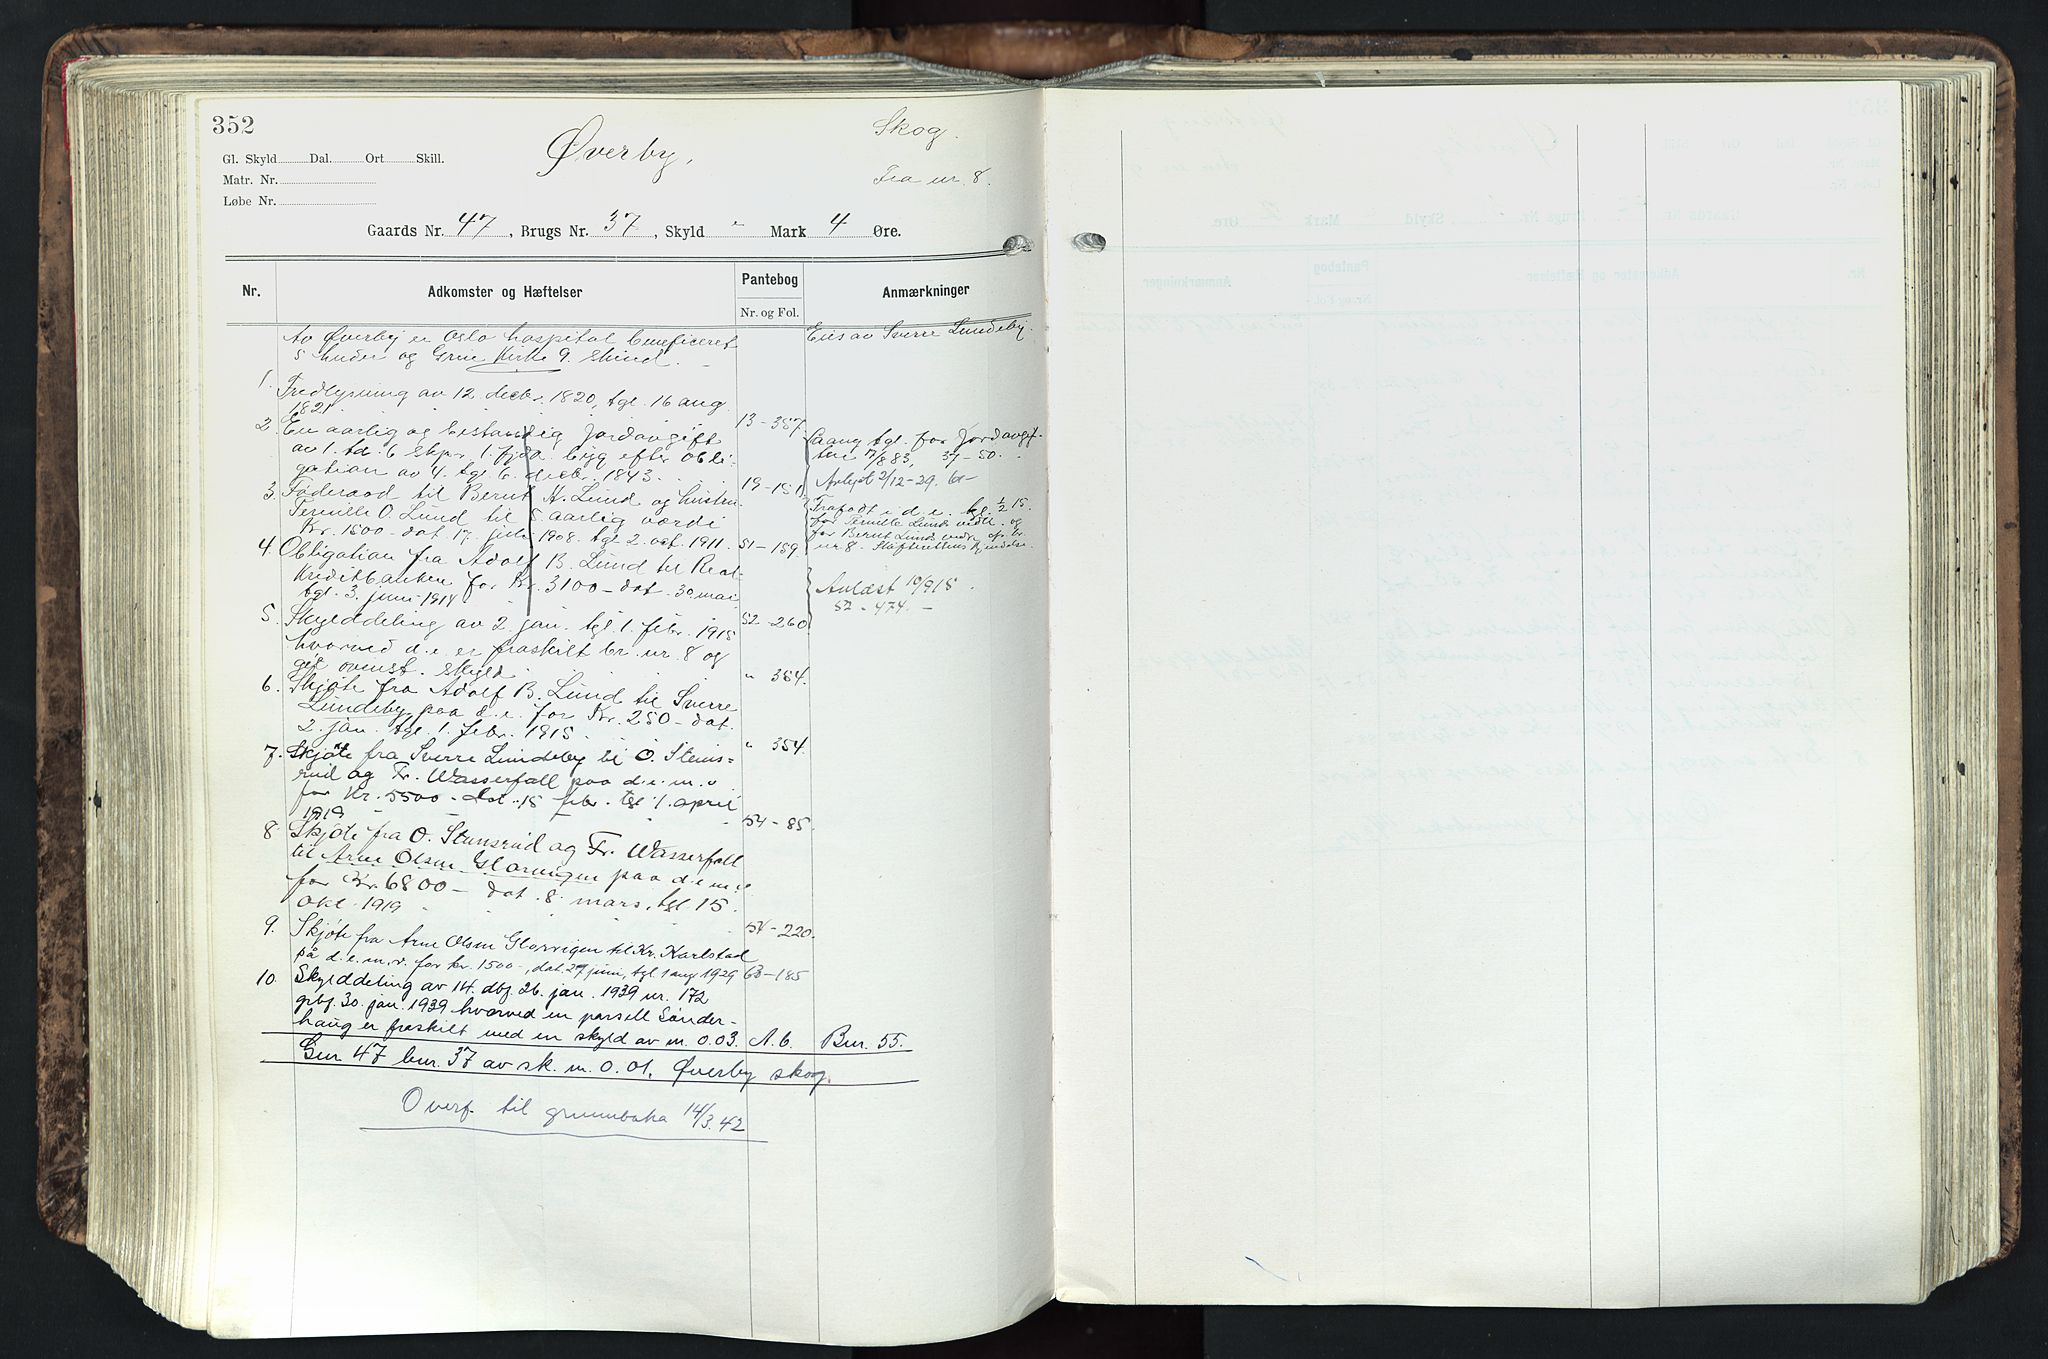 352
Øverby,
Skog.
Gl. Skyld Dal. Ort Skill.
Matr. Nr.
Løbe Nr.
Fra nr. 8.
Gaards Nr. 47, Brugs Nr. 37, Skyld - Mark 4 Øre.
Nr. Adkomster og Hæftelser Pantebog Anmærkninger
Nr. og Fol.
Av Øverby er Oslo hospital beneficeret Eies av Sverre Lundeby.
5 huder og Grue Kirke 9. skind.
1. Fredlysning av 12. decbr. 1820, tgl. 16 aug.
1821. 13-357
2. En aarlig og bestandig jordavgift
av 1. td. 6 skpr. 1. fjdk. byg efter obli-
gation av 4. tgl. 6. decbr. 1843. 19-151
tgl. for Jordavgif-
ten 7/8 83, 37-50.
Avlyst 2/12-29. 61-
3. Føderaad til Bernt H. Lund og hustru
Pernille O. Lund til 5 aarlig værdi
Kr. 1500- dat. 17. juli 1908. tgl. 2. oct. 1911. 51-159
Frafaldt i d.e. tgl. 1/2 15.
for Pernille Lunds vedk. og
for Bernt Lunds vedk. br.
nr. 8.
4. Obligation fra Adolf B. Lund til Real-
kreditbanken for Kr. 3100- dat. 30. mai
tgl. 3. juni 1914 52-260
Avlæst 10/9 18.
52-474.-
5. Skylddeling av 2. jan. tgl. 1. febr. 1915
hvorved d.e. er fraskilt br. nr. 8 og
git ovenst. skyld " 354.
6. Skjøte fra Adolf B. Lund til Sverre
Lundeby paa d.e. for Kr. 250- dat.
2. jan. tgl. 1. febr. 1915. " 354.
7. Skjøte fra Sverre Lundeby til O. Stens-
rud og Fr. Wasserfall paa d.e.m.v
for Kr. 5500- dat. 15 febr. tgl 1. april
1919 54-85.
8. Skjøte fra O. Stensrud og Fr. Wasserfall
til Arne Olsen Glorvigen paa d.e.m.v.
for Kr. 6800- dat. 8. mars, tgl. 15.
okt. 1919 54-220.
9. Skjøte fra Arne Olsen Glorvigen til Kr. Karlstad
på d.e.m.v. for kr. 1500-, dat. 27 juni, tgl 1 aug 1929 63-185
10. Skylddeling av 14. dbf. 26. jan. 1939 nr. 172
grbf. 30. jan. 1939 hvorved en parsell Sönder-
haug er fraskilt med en skyld av m. 0.03. A.6. Bnr. 55.
Gnr 47 bnr. 37 av sk. m. 0.01. Øverby skog.
Overf. til grunnboka 14/3.42